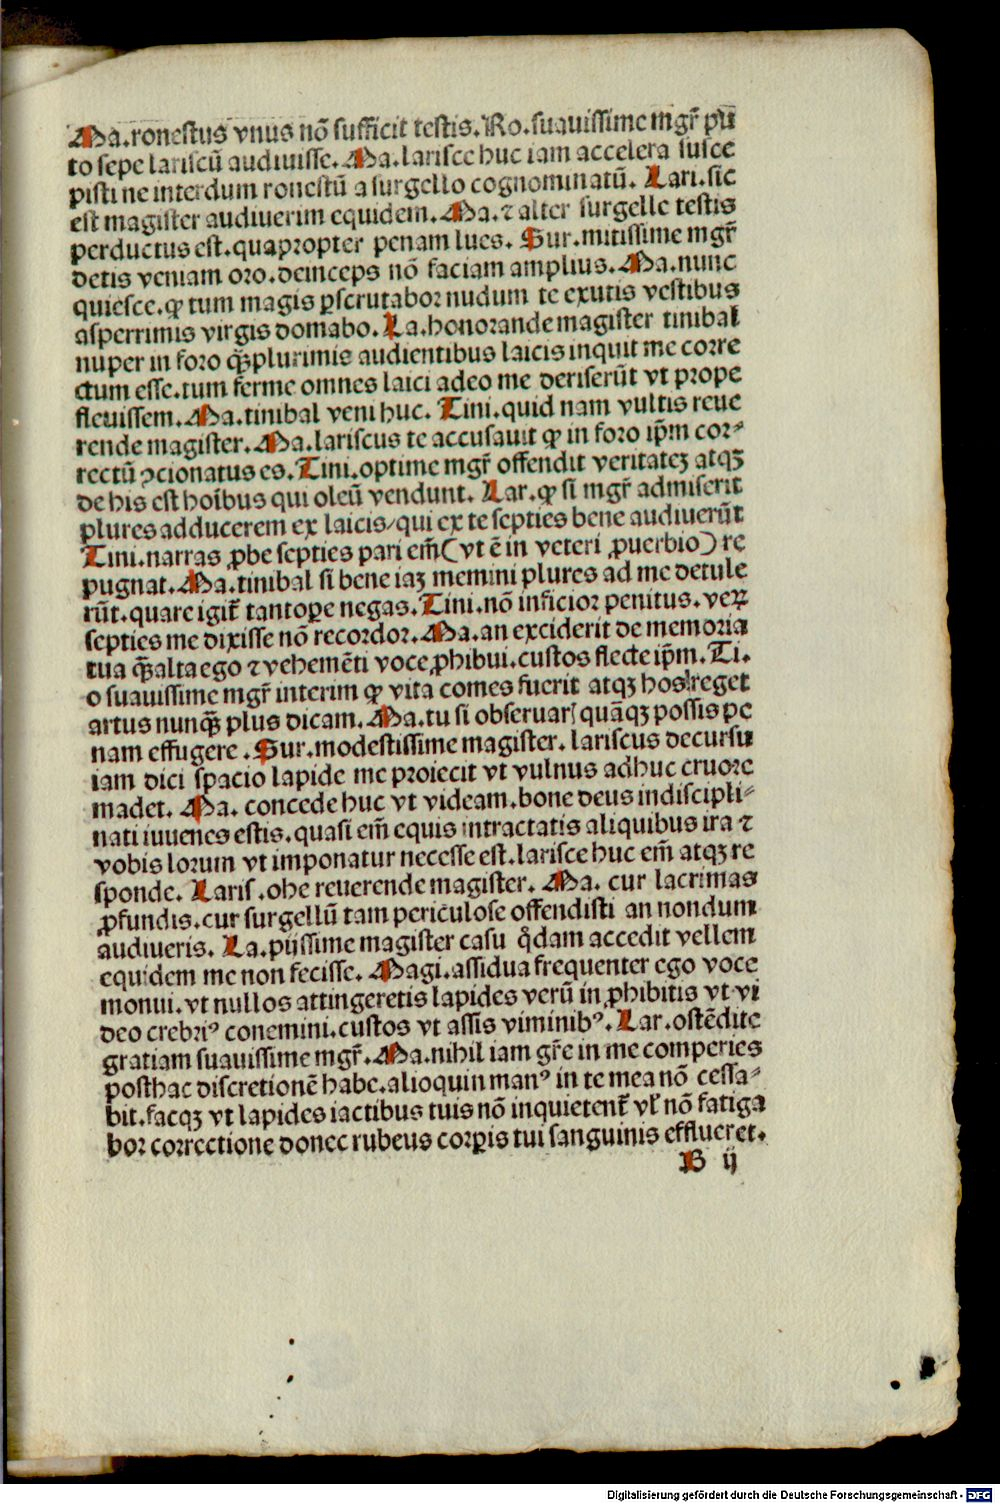 Ma.ronestus vnus nõ sufficit testis. Ro.suauissime mgr̃ pu
to sepe lariscũ audiuisse. Ma.larisce huc iam accelera susce
pisti ne interdum ronestũ a surgello cognominatũ. Lari.sic
est magister audiuerim equidem. Ma.⁊ alter surgelle testis
perductus est.quapropter penam lues. Sur.mitissime mgr̃
detis veniam oro.deinceps nõ faciam amplius. Ma.nunc
quiesce.qꝫ tum magis ꝑscrutabor nudum te exutis vestibus
asperrimis virgis domabo. La.honorande magister tinibal
nuper in foro qꝫ̃plurimis audientibus laicis inquit me corre
ctum esse.tum ferme omnes laici adeo me deriserũt vt prope
fleuissem. Ma.tinibal veni huc. Tini.quid nam vultis reue
rende magister. Ma.lariscus te accusauit ꝙ in foro ip̃m cor⸗
rectũ ꝯcionatus es. Tini.optime mgr̃ offendit veritateꝫ atqꝫ
de his est hoĩbus qui oleũ vendunt. Lar.ꝙ si mgr̃ admiserit
plures adducerem ex laicis/qui ex te septies bene audiuerũt
Tini.narras ꝓbe septies pari em̃ (vt ẽ in veteri ꝓuerbio) re
pugnat. Ma.tinibal si bene iaꝫ memini plures ad me detule
rũt.quare igit̃ tantoꝑe negas. Tini.nõ inficior penitus.veꝝ
septies me dixisse nõ recordor. Ma.an exciderit de memoria
tua qꝫ̃ alta ego ⁊ vehemẽti voce ꝓhibui.custos flecte ip̃m. Ti.
o suauissime mgr̃ interim ꝙ vita comes fuerit atqꝫ hos reget
artus nunqꝫ̃ plus dicam. Ma.tu si obseruar̃ quãqꝫ possis pe
nam effugere. Sur.modestissime magister.lariscus decursu
iam dici spacio lapide me proiecit vt vulnus adhuc cruore
madet. Ma. concede huc vt videam.bone deus indiscipli⸗
nati iuuenes estis.quasi em̃ equis intractatis aliquibus ira ⁊
vobis lorum vt imponatur necesse est.larisce huc em̃ atqꝫ re
sponde. Laris.ohe reuerende magister. Ma. cur lacrimas
ꝓfundis.cur surgellũ tam periculose offendisti an nondum
audiueris. La.pijssime magister casu q̊dam accedit vellem
equidem me non fecisse. Magi.assidua frequenter ego voce
monui.vt nullos attingeretis lapides verũ in ꝓhibitis vt vi
deo crebriꝰ conemini.custos vt assis viminibꝰ. Lar.ostẽdite
gratiam suauissime mgr̃. Ma.nihil iam gr̃e in me comperies
posthac discretionẽ habe.alioquin manꝰ in te mea nõ cessa⸗
bit.facqꝫ vt lapides iactibus tuis nõ inquietent̃ vl̃ nõ fatiga
bor correctione donec rubeus corꝑis tui sanguinis efflueret.
B ij
Digitalisierung gefördert durch die Deutsche Forschungsgemeinschaft - DFG